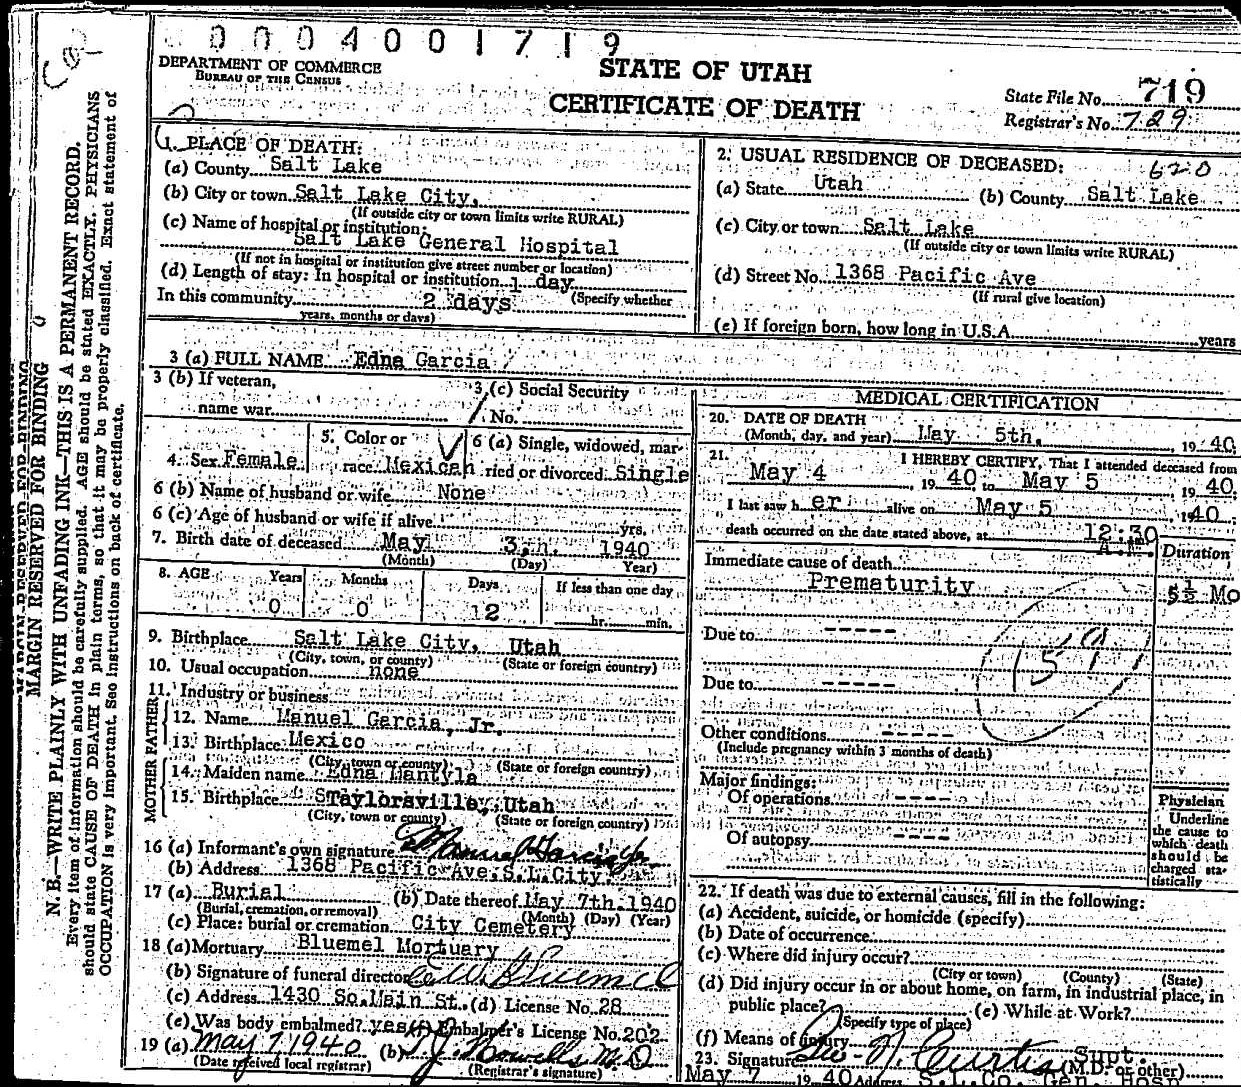 0004001719
DEPARTMENT OF COMMERCE
BUREAU OF THE CENSUS
STATE OF UTAH
CERTIFICATE OF DEATH
State File No. 719
Registrar's No. 729
MARGIN RESERVED FOR BINDING
N. B.—WRITE PLAINLY WITH UNFADING INK—THIS IS A PERMANENT RECORD.
Every item of information should be carefully supplied. AGE should be stated EXACTLY. PHYSICIANS
should state CAUSE OF DEATH in plain terms, so that it may be properly classified. Exact statement of
OCCUPATION is very important. See instructions on back of certificate.
1. PLACE OF DEATH:
(a) County Salt Lake
(b) City or town Salt Lake City,
(If outside city or town limits write RURAL)
(c) Name of hospital or institution:
Salt Lake General Hospital
(If not in hospital or institution give street number or location)
(d) Length of stay: In hospital or institution 1 day
(Specify whether
In this community 2 days
years, months or days)
2. USUAL RESIDENCE OF DECEASED: 620
(a) State Utah (b) County Salt Lake
(c) City or town Salt Lake
(If outside city or town limits write RURAL)
(d) Street No. 1368 Pacific Ave
(If rural give location)
(e) If foreign born, how long in U.S.A. years
3 (a) FULL NAME Edna Garcia
3 (b) If veteran,
name war
3 (c) Social Security
No.
4. Sex Female
5. Color or
race Mexican
6 (a) Single, widowed, mar-
ried or divorced Single
6 (b) Name of husband or wife None
6 (c) Age of husband or wife if alive yrs.
7. Birth date of deceased May 3, 1940
(Month) (Day) Year)
8. AGE Years Months Days If less than one day
0 0 12 hr. min.
9. Birthplace Salt Lake City, Utah
(City, town, or county) (State or foreign country)
10. Usual occupation none
11. Industry or business
FATHER
12. Name Manuel Garcia, Jr.
13. Birthplace Mexico
(City, town or county) (State or foreign country)
MOTHER
14. Maiden name Edna Mantyla
15. Birthplace Taylorsville, Utah
(City, town or county) (State or foreign country)
16 (a) Informant's own signature Manuel Garcia Jr
(b) Address 1368 Pacific Ave. S.L.City.
17 (a) Burial (b) Date thereof May 7th. 1940
(Burial, cremation, or removal) (Month) (Day) (Year)
(c) Place: burial or cremation City Cemetery
18 (a) Mortuary Bluemel Mortuary
(b) Signature of funeral director E W Bluemel
(c) Address 1430 So. Main St. (d) License No. 28
(e) Was body embalmed? yes (f) Embalmer's License No. 202
19 (a) May 7 1940 (b) M.D
(Date received local registrar) (Registrar's signature)
MEDICAL CERTIFICATION
20. DATE OF DEATH
(Month, day, and year) May 5th, 1940
21. I HEREBY CERTIFY, That I attended deceased from
May 4, 1940, to May 5, 1940;
I last saw her alive on May 5, 1940;
death occurred on the date stated above, at 12:30
A.M.
Duration
Immediate cause of death
Prematurity 5½ Mo
Due to -----
159
Due to -----
Other conditions -----
(Include pregnancy within 3 months of death)
Major findings:
Of operations ----
Of autopsy ----
Physician
Underline
the cause to
which death
should be
charged sta-
tistically
22. If death was due to external causes, fill in the following:
(a) Accident, suicide, or homicide (specify)
(b) Date of occurrence
(c) Where did injury occur?
(City or town) (County) (State)
(d) Did injury occur in or about home, on farm, in industrial place, in
public place? (e) While at Work?
(Specify type of place)
(f) Means of injury
23. Signature Curtis Supt.
(M.D. or other)
May 7 1940 Address S.L.Co. Gen. Hos